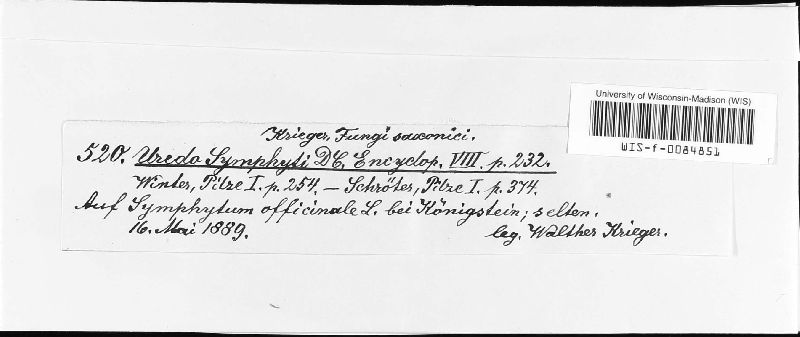 University of Wisconsin-Madison (WIS)
WIS-f-0084851
Krieger, Fungi saxonici.
520. Uredo Symphyti DC. Encyclop. VIII. p. 232.
Winter, Pilze I. p. 254. — Schröter, Pilze I. p. 374.
Auf Symphytum officinale L. bei Königstein; selten.
16. Mai 1889. leg. Walther Krieger.